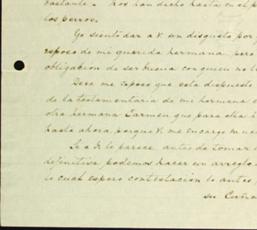 bastante. Nos han dicho hasta en el p
los perros.
Yo siento dar a V. un disgusto por
esposo de mi querida hermana, pero
obligacion de ser buena con quien no lo
Dera mi esposo que esta dispuesto
de la testamentaria de mi hermana
otra hermana Carmen que para ella
hasta ahora, porque V. me encargo
Si a V. le parece antes de tomar
definitiva, podemos hacer un arreglo
lo cual espero contestacion lo antes
su Cuña